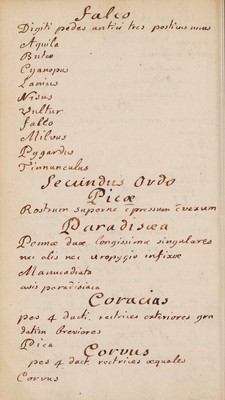 Falco
Digiti pedes antici tres posticus unus
Aquila
Buteo
Cyanopus
Lanius
Nisus
Vultur
Falco
Milvus
Pygargus
Tinnunculus
Secundus Ordo
Picæ
Rostrum superne cpressum cvexum
Paradisæa
Pennæ duæ longissimæ singulares
nec alis nec uropygio infixæ
Manucodiata
avis paradisiaca
Coracias
pes 4 dact. rectrices exteriores gra
datim breviores
Pica
Corvus
pes 4 dact. rectrices æquales
Corvus